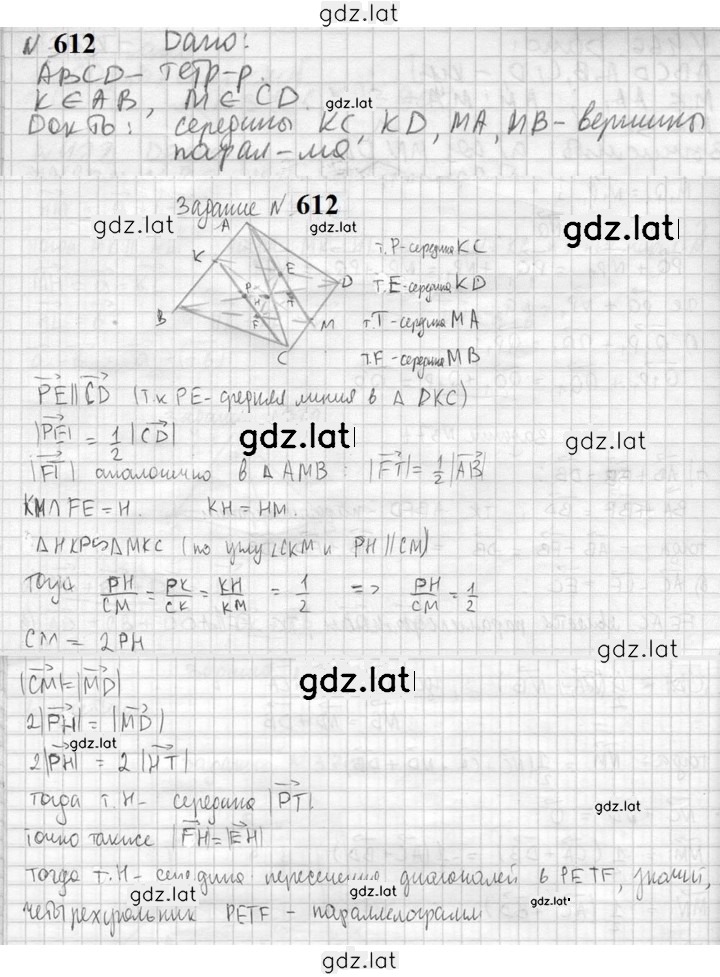 gdz.lat
N 612 Дано:
ABCD- тетр-р.
K∈AB, M∈CD.
gdz.lat
Док-ть: середины KC, KD, MA, MB- вершины
парал-ма
Задание N 612
gdz.lat
gdz.lat
gdz.lat
A
K
E
D
P
H
T
B
F
M
C
т.P-середина KC
т.E-середина KD
gdz.lat
т.T- середина MA
т.F- середина MB
PE∥CD (т.к PE- средняя линия в Δ DKC)
|PE| = 1/2 |CD|
gdz.lat
gdz.lat
|FT| аналогично в Δ AMB: |FT|= 1/2 |AB|
KM∩FE = H. KH = HM.
gdz.lat
gdz.lat
ΔHKP∽ΔMKC (по углу ∠CKM и PH∥CM)
Тогда PH/CM = PK/CK = KH/KM = 1/2 => PH/CM = 1/2
CM = 2PH
gdz.lat
|CM|=|MD|
2|PH|= |MD|
gdz.lat
2|PH| = 2|HT|
Тогда т.H- середина |PT|.
gdz.lat
Точно также |FH|=|EH|
Тогда т.H- середина пересечения диагоналей в PETF, значит,
gdz.lat
gdz.lat
gdz.lat
четырехугольник PETF - параллелограмм
gdz.lat